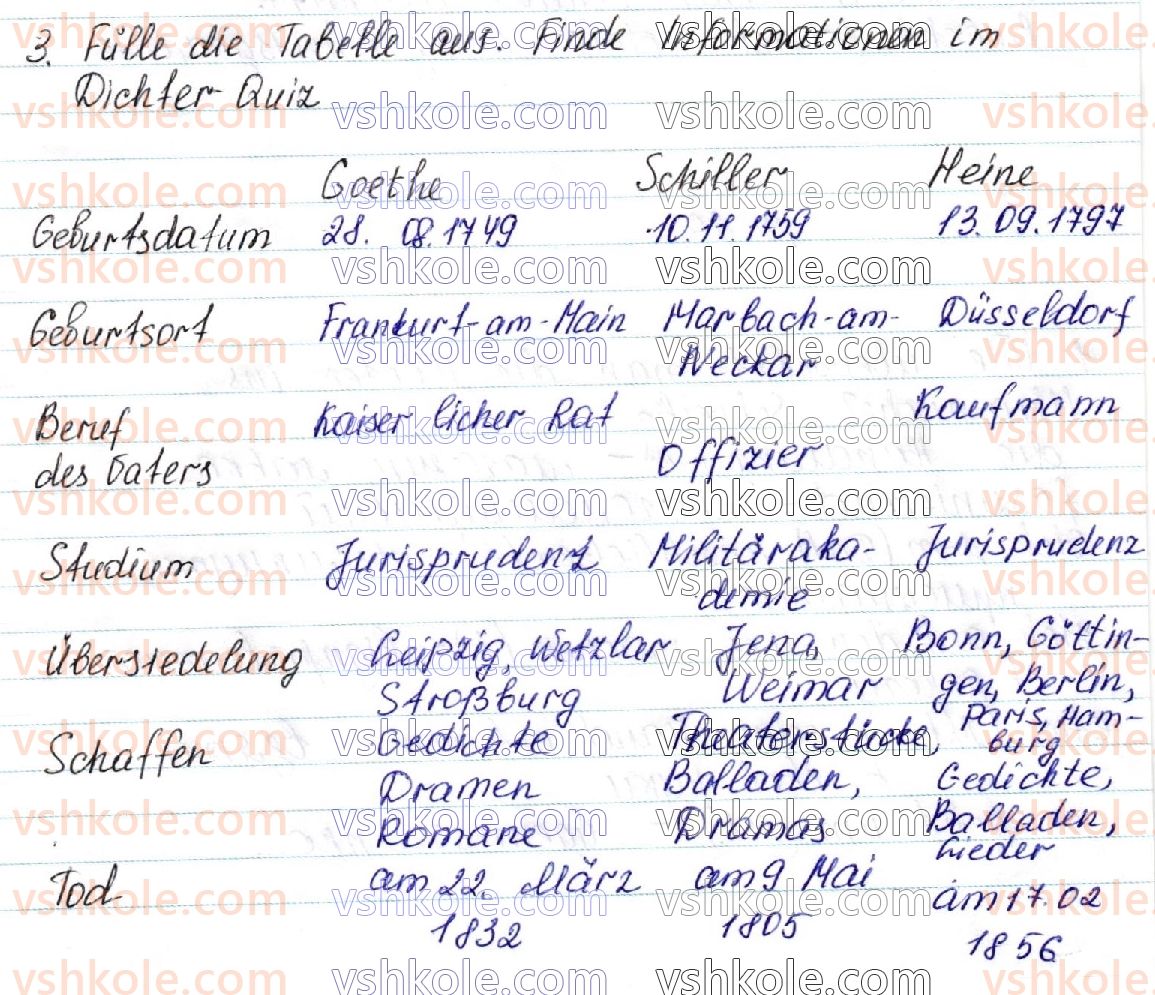 3. Fülle die Tabelle aus. Finde Informationen im
Dichter-Quiz
Goethe Schiller Heine
Geburtsdatum 28. 08. 1749 10. 11. 1759 13. 09. 1797
Geburtsort Frankurt-am-Main Marbach-am- Düsseldorf
Neckar
Beruf Kaiser licher Rat Kaufmann
des Vaters Offizier
Studium Jurisprudenz Militäraka- Jurisprudenz
demie
Übersiedelung Leipzig, Wetzlar Jena, Bonn, Göttin-
Stroßburg Weimar gen, Berlin,
Paris, Ham-
Schaffen Gedichte Theaterstücke, burg
Dramen Balladen, Gedichte,
Romane Dramas Balladen,
Lieder
Tod am 22. März am 9 Mai am 17.02
1832 1805 1856
vshkole.com